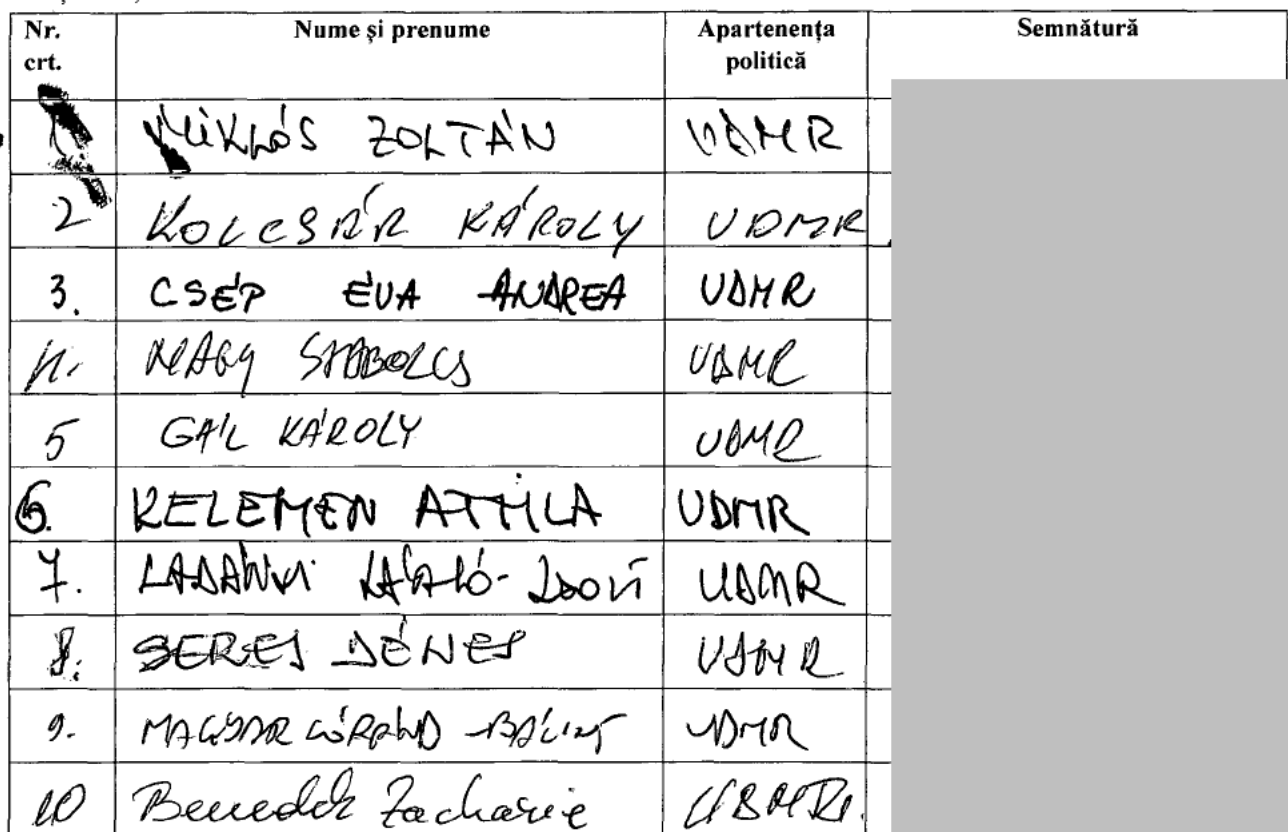 Nr. crt. Nume şi prenume Apartenenţa politică Semnătură
1 MIKLÓS ZOLTÁN UDMR
2 KOLCSÁR KÁROLY UDMR
3. CSÉP ÉVA ANDREA UDMR
4. NAGY SZABOLCS UDMR
5 GÁL KÁROLY UDMR
6. KELEMEN ATTILA UDMR
7. LADÁNYI LÁSZLÓ-ZSOLT UDMR
8. SERES DÉNES UDMR
9. MAGYAR LÓRÁND-BÁLINT UDMR
10 Benedek Zacharie UDMR.